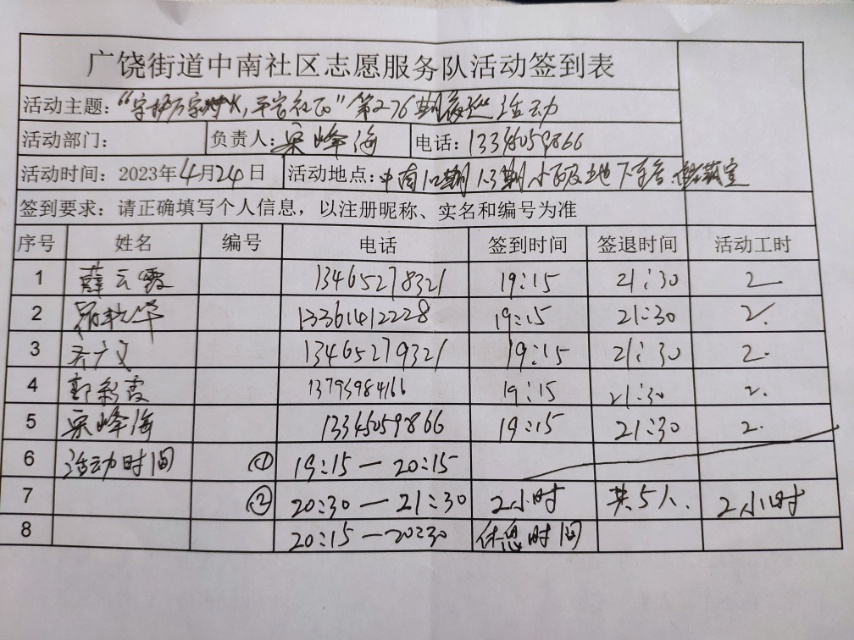 广饶街道中南社区志愿服务队活动签到表
活动主题：“守护万家灯火，平安社区”第276期夜巡活动
活动部门： 负责人：梁峰海 电话：13345059866
活动时间：2023年4月24日 活动地点：中南1.2期1.3期小区及地下室
签到要求：请正确填写个人信息，以注册昵称、实名和编号为准
序号 姓名 编号 电话 签到时间 签退时间 活动工时
1 薛云霞 13465278321 19:15 21:30 2
2 13361412228 19:15 21:30 2.
3 13465279321 19:15 21:30 2.
4 郭彩霞 13793984166 19:15 21:30 2.
5 梁峰海 13345059866 19:15 21:30 2.
6 活动时间 ① 19:15—20:15
7 ② 20:30—21:30 2小时 共5人. 2小时
8 20:15—20:30 休息时间